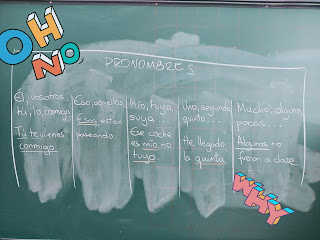 OH
NO
PRONOMBRES
Él, vosotros,
tú, lo, conmigo
Tú te vienes
conmigo
Eso, aquellos
Esos están
paseando.
Mío, tuyo,
suya...
Ese coche
es mío, no
tuyo.
Uno, segundo,
quinto...
He llegado
la quinta
Mucho, alguna,
pocas...
Algunos no
fueron a clase.
WHY